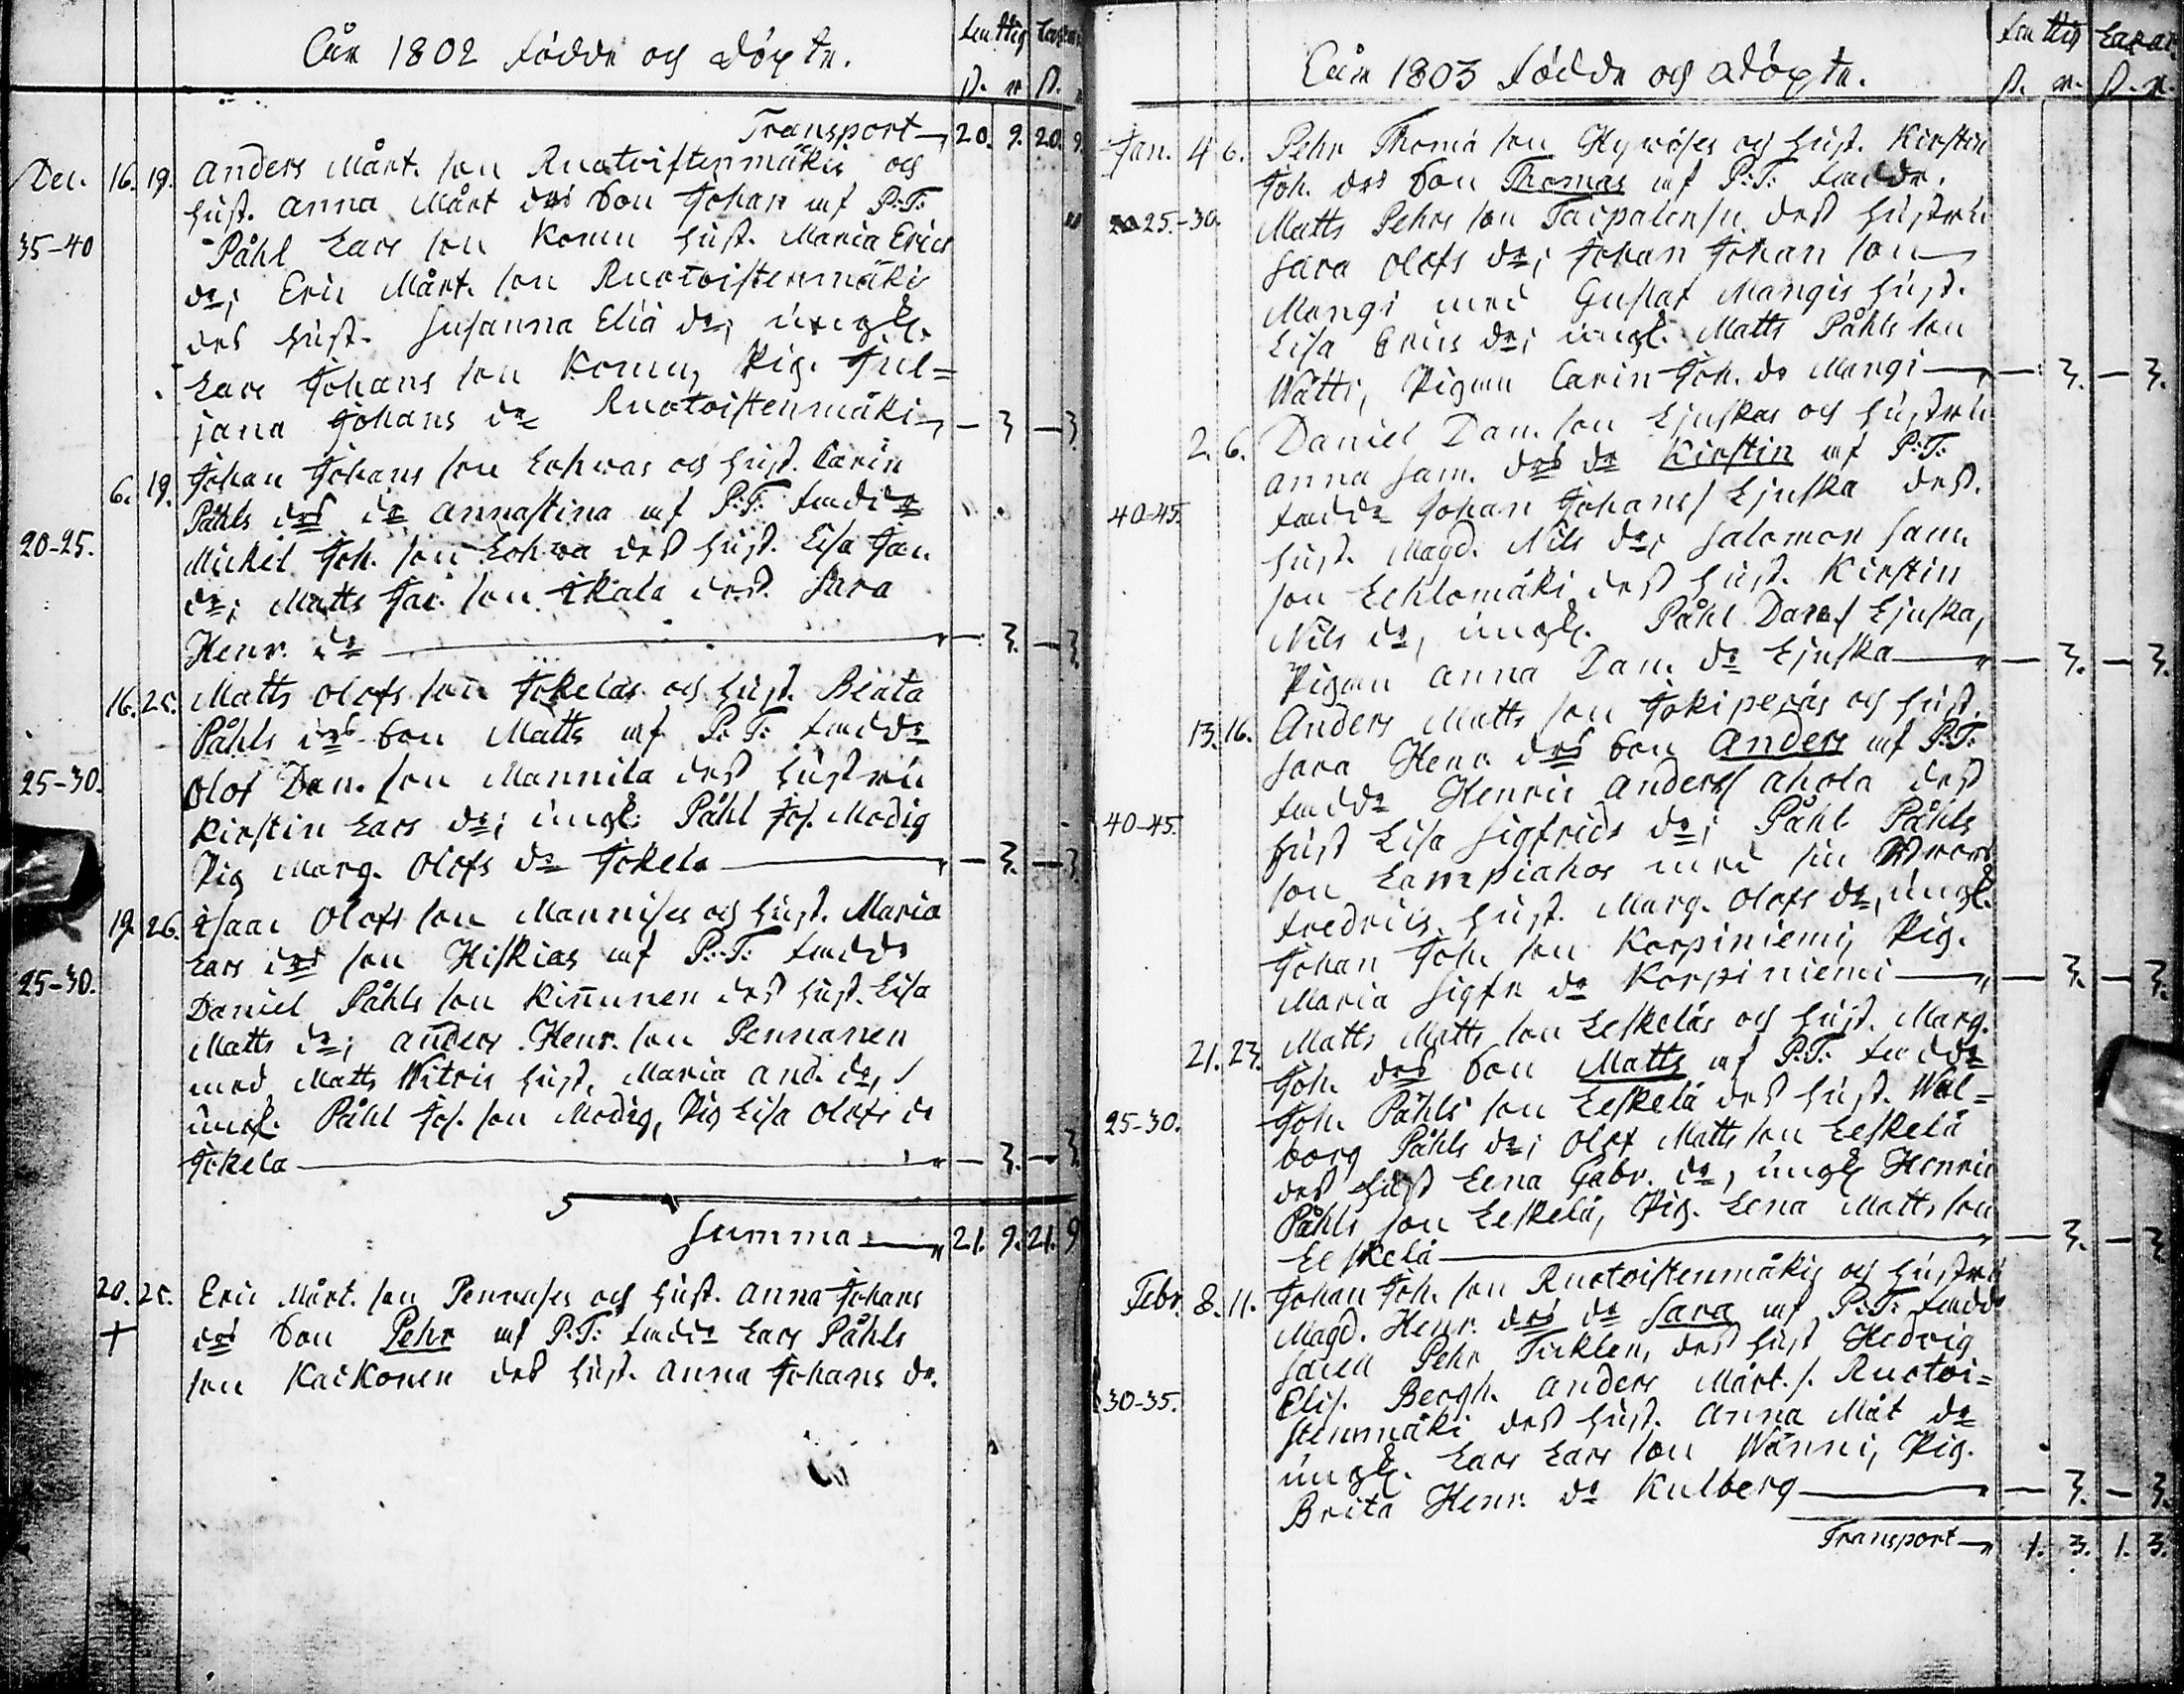 Åår 1802 födde och döpte.
fattig Lasar
S. n S.
Transport 20. 9. 20. 9
Dec. 16. 19. Anders Mårt. son Ruotoistenmäkis och
hust. Anna Mårt des Son Johan af P:T:
35-40 Påhl Lars son Komu hust. Maria Erics
dr; Eric Mårt. son Ruotoistenmäki
des hust. Susanna Eliä dr; ungk.
Lars Johans son Komu, Pig. Jul=
jana Johans dr Ruotoistenmäki — 3 — 3
6. 19. Johan Johans son Lohwas och hust. Carin
Påhls drs dr Annastina af P:T: fadde
20-25. Mickel Joh. son Lohwa des hust. Lisa Jan.
dr; Matts Jac. son Ikala des Sara
Henr. dr — 3. — 3.
16. 25. Matts Olofs son Jokelas och hust. Beata
Påhls drs Son Matts af P:T: fadde
25-30. Olof Dan. son Mannila des hustru
Kirstin Lars dr; ungk: Påhl Jos. Modig
Pig Marg. Olofs dr Jokela — 3. — 3
19. 26. Isaac Olofs son Mannises och hust. Maria
Lars drs son Hiskias af P:T: fadde
25-30. Daniel Påhls son Kinnunen des hust. Lisa
Matts dr; Anders Henr. son Pennanen
med Matts Witcis hust, Maria And. dr,
ungk. Påhl Jos. son Modig, Pig Lisa Olofs dr
Jokela — 3. — 3
5
Summa 21. 9. 21. 9
20. 25. Eric Mårt. son Pennases och hust. Anna Johans
+ drs Son Pehr af P:T: fadde Lars Påhls
son Kaikonen des hust. Anna Johans dr.
Åår 1803 födde och döpte.
fattig Lasar
S. n. S. n.
Jan. 4 6. Pehr Thomä son Hywöses och hust. Kirstin
Joh. drs Son Thomas af P:T: fadde.
25-30. Matts Pehrs son Taipalensu des hustru
Sara Olofs dr; Johan Johan son
Mangi med Gustaf Mangis hust.
Lisa Erics dr; ungk. Matts Påhls son
Wätti, Pigan Carin Joh. dr Mangi — 3. — 3.
2. 6. Daniel Dan. son Ljuskas och hustru
Anna Sam. drs dr Kirstin af P:T:
40-45. fadde Johan Johans Ljuska des
hust. Magd. Nils dr; Salomon Sam.
son Lehlomäki des hust. Kirstin
Nils dr, ungk. Påhl Dan Ljuska,
Pigan Anna Dan. dr Ljuska — 3. — 3.
13. 16. Anders Matts son Jokiperäs och hust.
Sara Henr. drs Son Anders af P:T:
fadde Henric Anders Ahola des
40-45. hust Lisa Sigfrids dr; Påhl Påhls
son Lampiahos med sin
Fredrics hust. Marg. Olofs dr, ungk.
Johan Joh. son Korpiniemi, Pig.
Maria Sigfr. dr Korpiniemi — 3. — 3.
21. 23. Matts Matts son Leskeläs och hust. Marg.
Joh. drs Son Matts af P:T: fadde
25-30. Joh. Påhls son Leskelä des hust. Wal=
borg Påhls dr; Olof Matts son Leskelä
des hust Lena Gabr. dr, ungk Henric
Påhls son Leskelä, Pig. Lena Matts son
Leskelä — 3. — 3
Febr. 8. 11. Johan Joh. son Ruotoistenmäkis och hustru
Magd. Henr. drs dr Sara af P:T: fadde
Pehr Ticklen, des hust Hedvig
30-35. Elis. Bergh. Anders Mårt. s. Ruotoi=
stenmäki des hust. Anna Måt dr
ungk. Lars Lars son Wänni, Pig.
Brita Henr. dr Kulberg — 3. — 3.
Transport 1. 3. 1. 3.